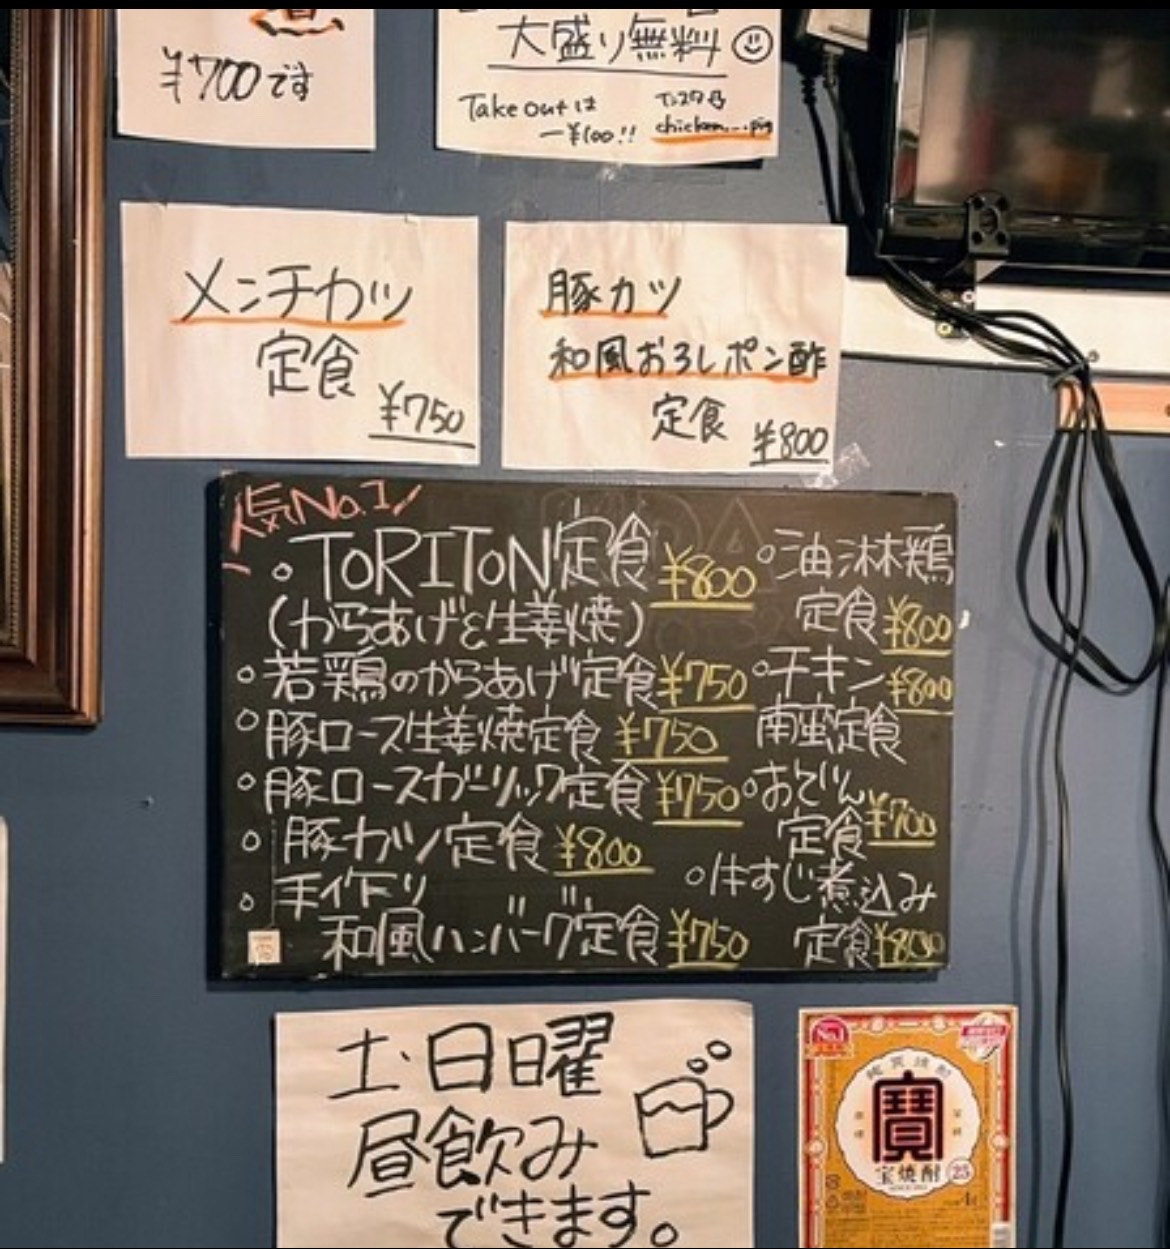 ¥700です
大盛り無料
Take outは
ー¥100!!
インスタ
chicken....pig
メンチカツ
定食
¥750
豚カツ
和風おろしポン酢
定食
¥800
人気No.1
TORITON定食 ¥800
(からあげ&生姜焼)
若鶏のからあげ定食 ¥750
豚ロース生姜焼定食 ¥750
豚ロースガーリック定食 ¥750
豚カツ定食 ¥800
手作り
和風ハンバーグ定食 ¥750
油淋鶏
定食 ¥800
チキン ¥800
南蛮定食
おでん
定食 ¥700
牛すじ煮込み
定食 ¥800
土・日曜
昼飲み
できます。
No.1
純良焼酎
寳
宝焼酎 25